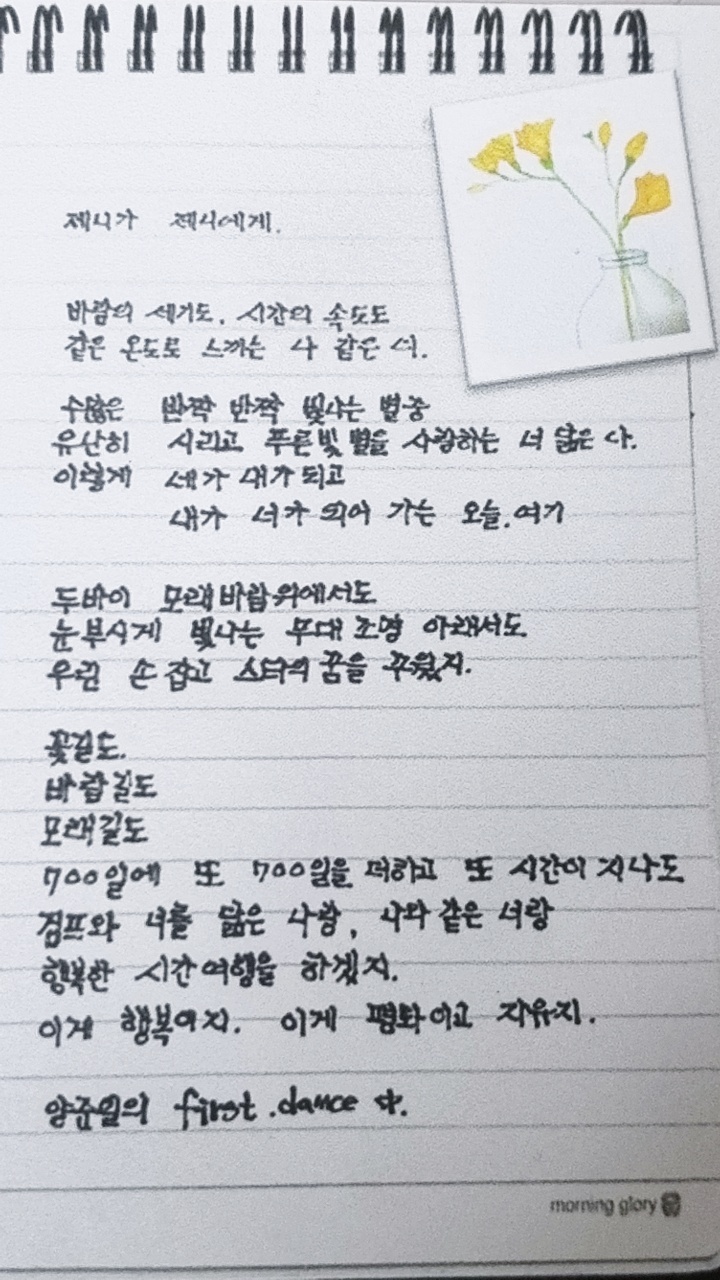 제시가 제시에게.
바람의 세기도, 시간의 속도도
같은 온도로 느끼는 나 같은 너.
수많은 반짝 반짝 빛나는 별 중
유난히 시리고 푸른빛 별을 사랑하는 너 닮은 나.
이렇게 네가 내가 되고
내가 너가 되어 가는 오늘. 여기
두바이 모래바람위에서도
눈부시게 빛나는 무대 조명 아래서도
우린 손 잡고 스타의 꿈을 꾸웠지.
꽃길도.
바람길도
모래길도
700일에 또 700일을 더하고 또 시간이 지나도
점프와 너를 닮은 사랑, 나와 같은 너랑
행복한 시간여행을 하겠지.
이게 행복이지. 이게 평화이고 자유지.
양준일의 first.dance
morning glory